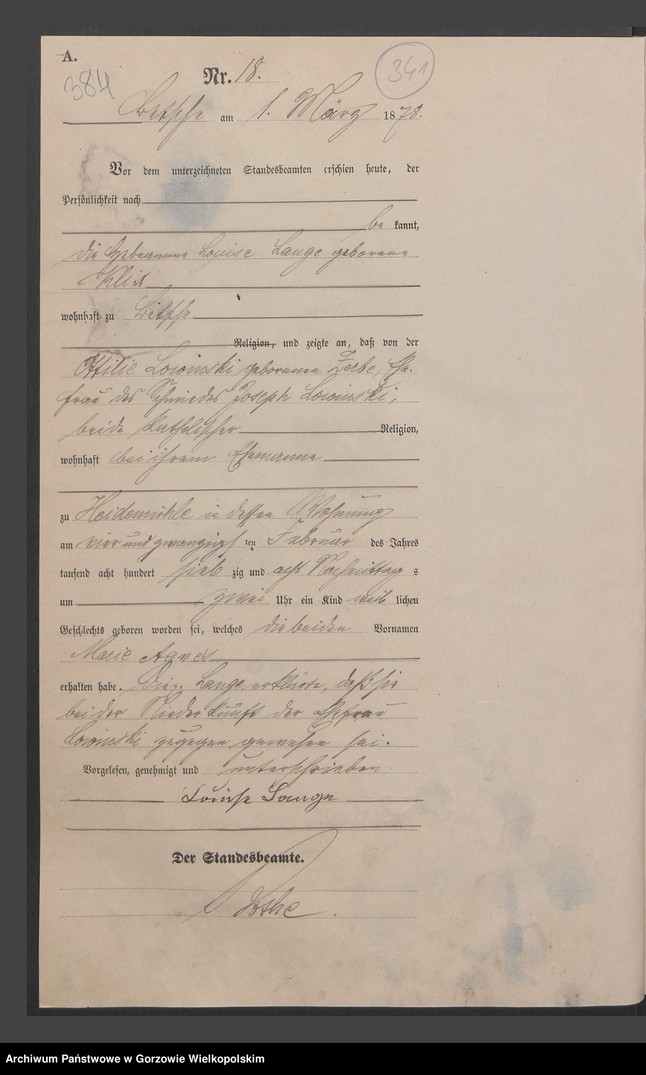 A.
384
Nr. 18.
341
Betsche am 1. März 1878.
Vor dem unterzeichneten Standesbeamten erschien heute, der
Persönlichkeit nach
be kannt,
die Hebamme Louise Lange geborene
wohnhaft zu Betsche
Religion, und zeigte an, daß von der
Ottilie Lowinski geborenen Zerbe, Ehe-
frau des Schmiedes Joseph Lowinski,
beide katholischer Religion,
wohnhaft bei ihrem Ehemanne
zu Heidemühle in dessen Wohnung
am vier und zwanzigs ten Februar des Jahres
tausend acht hundert sieb zig und acht Nachmittag s
um zwei Uhr ein Kind weib lichen
Geschlechts geboren worden sei, welches die beiden Vornamen
Marie Agnes
erhalten habe. Lange erklärte, daß sie
bei der Niederkunft der Ehefrau
Lowinski zugegen gewesen sei.
Vorgelesen, genehmigt und unterschrieben
Louise Lange
Der Standesbeamte.
Archiwum Państwowe w Gorzowie Wielkopolskim